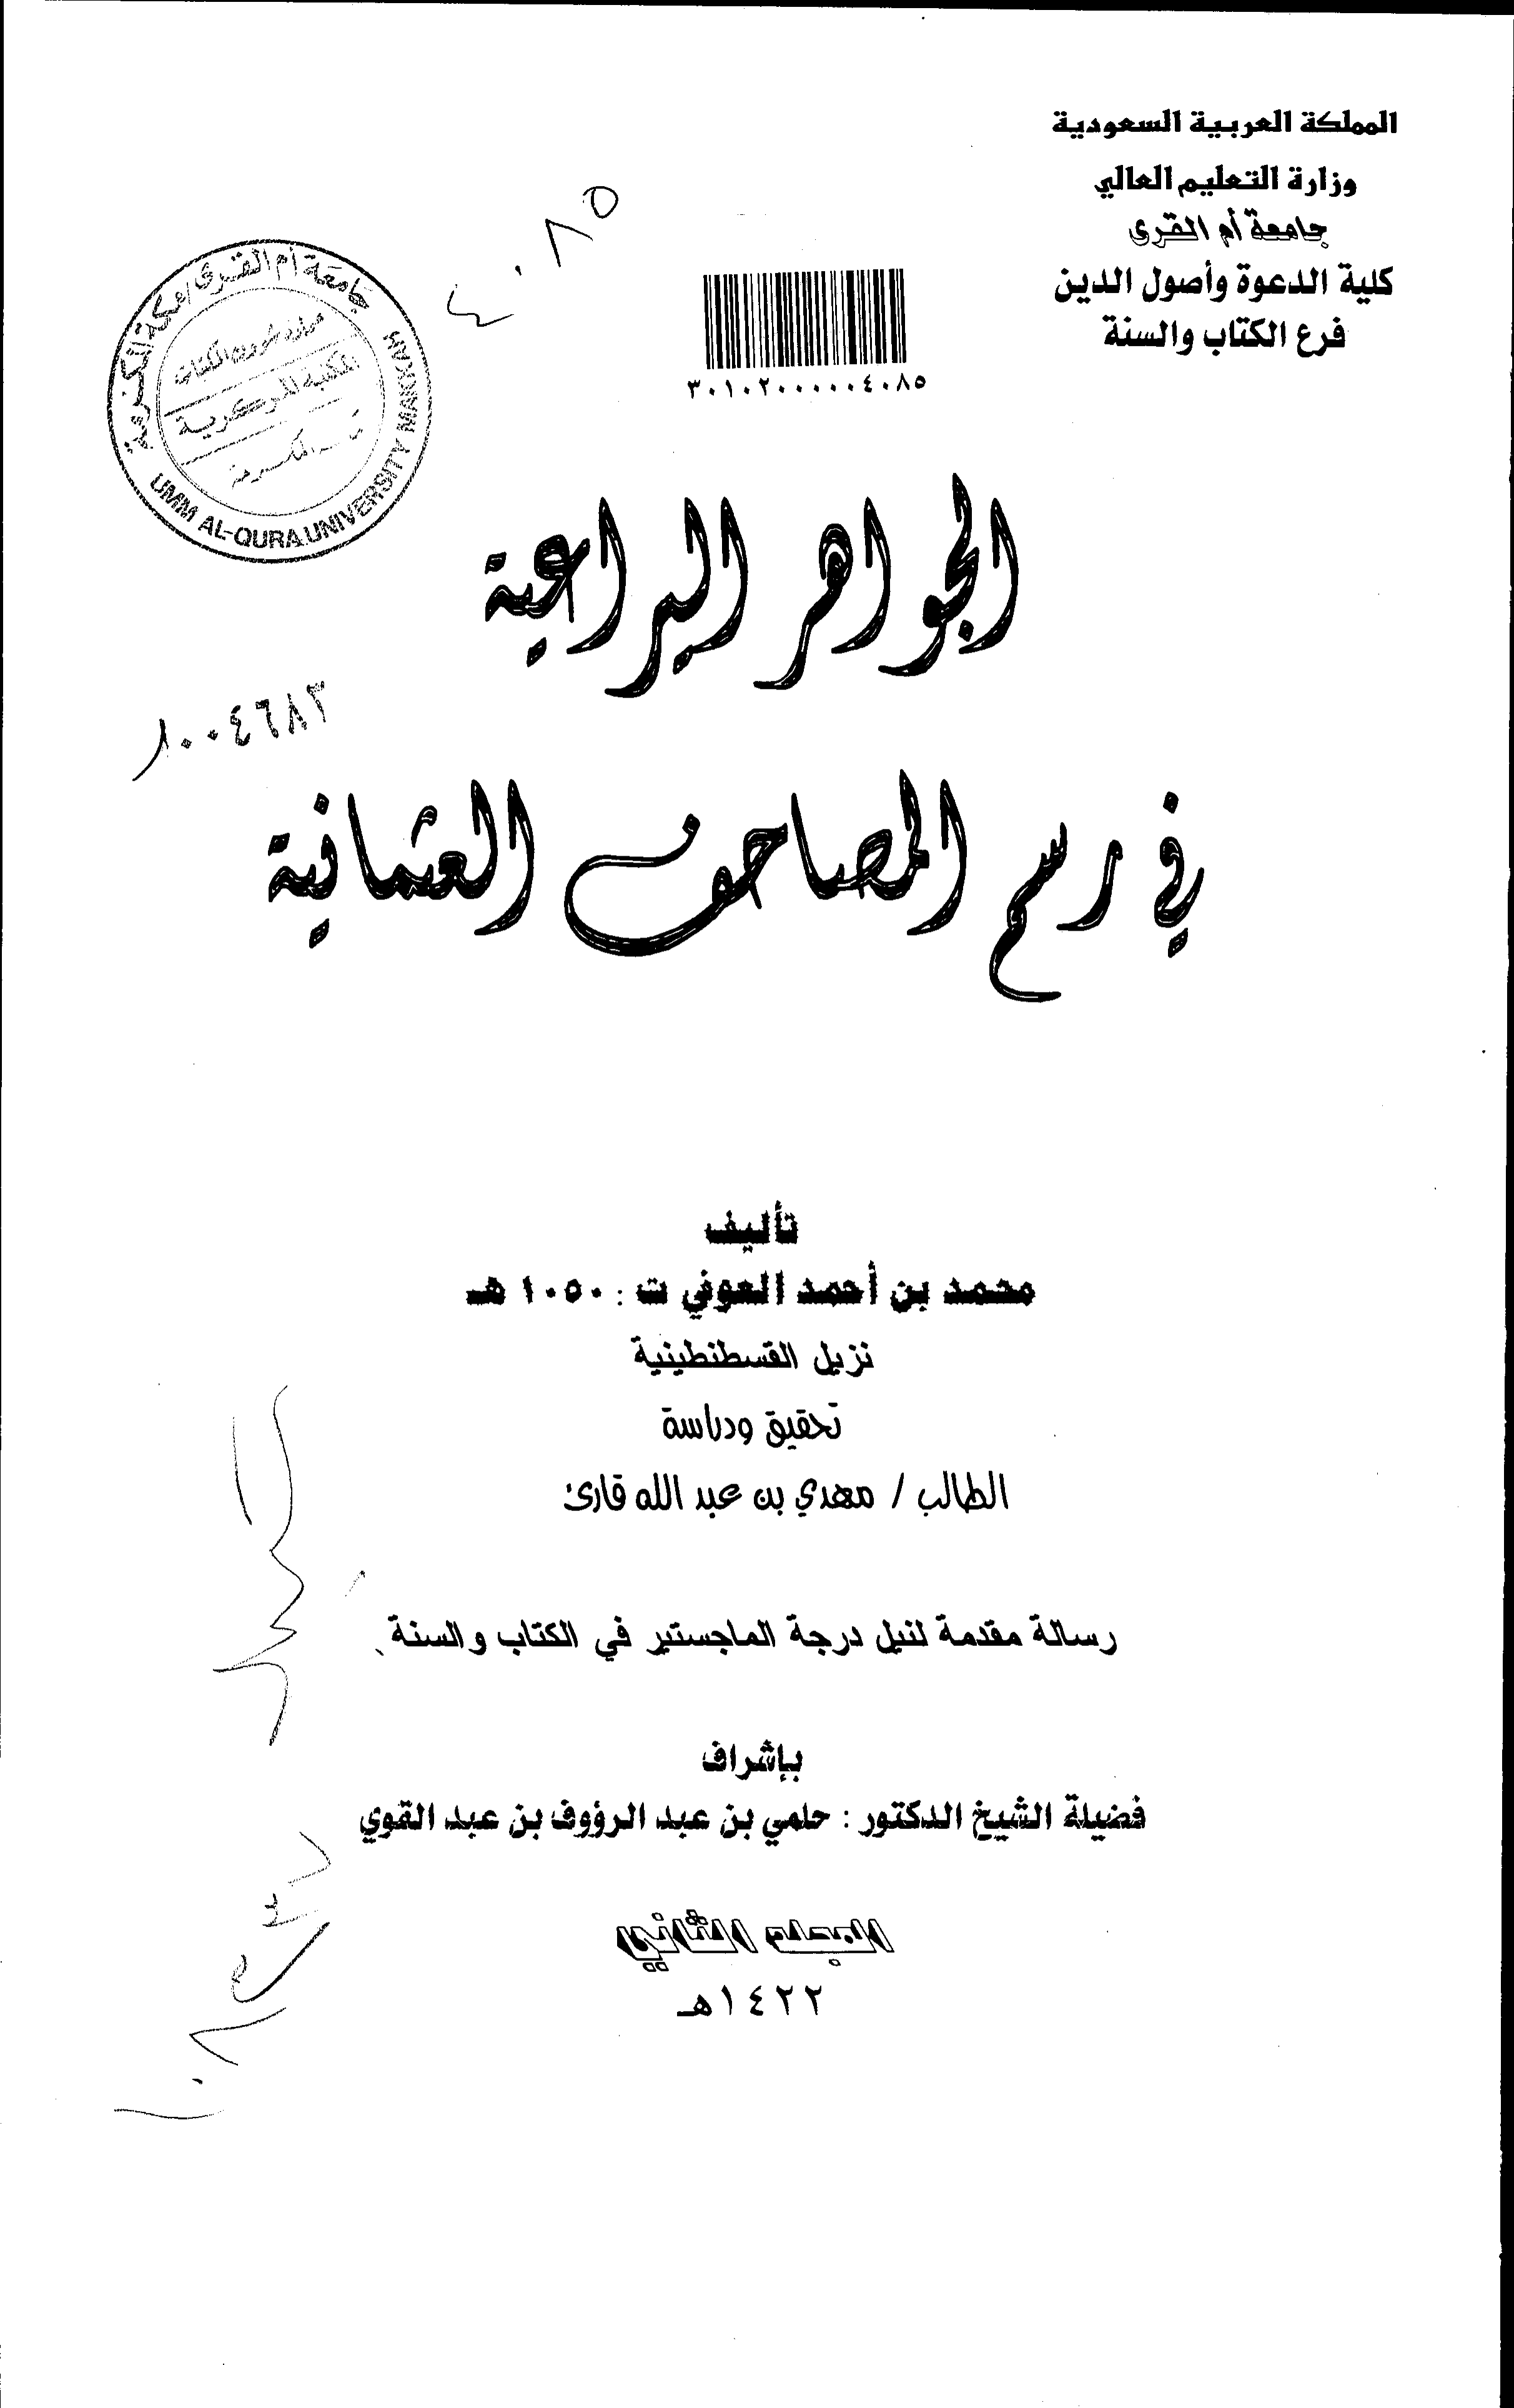 المملكة العربية السعودية
وزارة التعليم العالي
جامعة أم القرى
كلية الدعوة وأصول الدين
فرع الكتاب والسنة
٤٠٨٥
٣٠١٠٢٠٠٠٠٠٤٠٨٥
جامعة أم القرى / مكة المكرمة
المكتبة المركزية
UMM AL-QURA UNIVERSITY MAKKAH
الجواهر اليراعية
١٠٠٤٦٨٣
في رسم المصاحف العثمانية
تأليف
محمد بن أحمد العوفي ت : ١٠٥٠ هـ
نزيل القسطنطينية
تحقيق ودراسة
الطالب / مهدي بن عبد الله قارئ
رسالة مقدمة لنيل درجة الماجستير في الكتاب والسنة
بإشراف
فضيلة الشيخ الدكتور : حلمي بن عبد الرؤوف بن عبد القوي
المجلد الثاني
١٤٢٢هـ